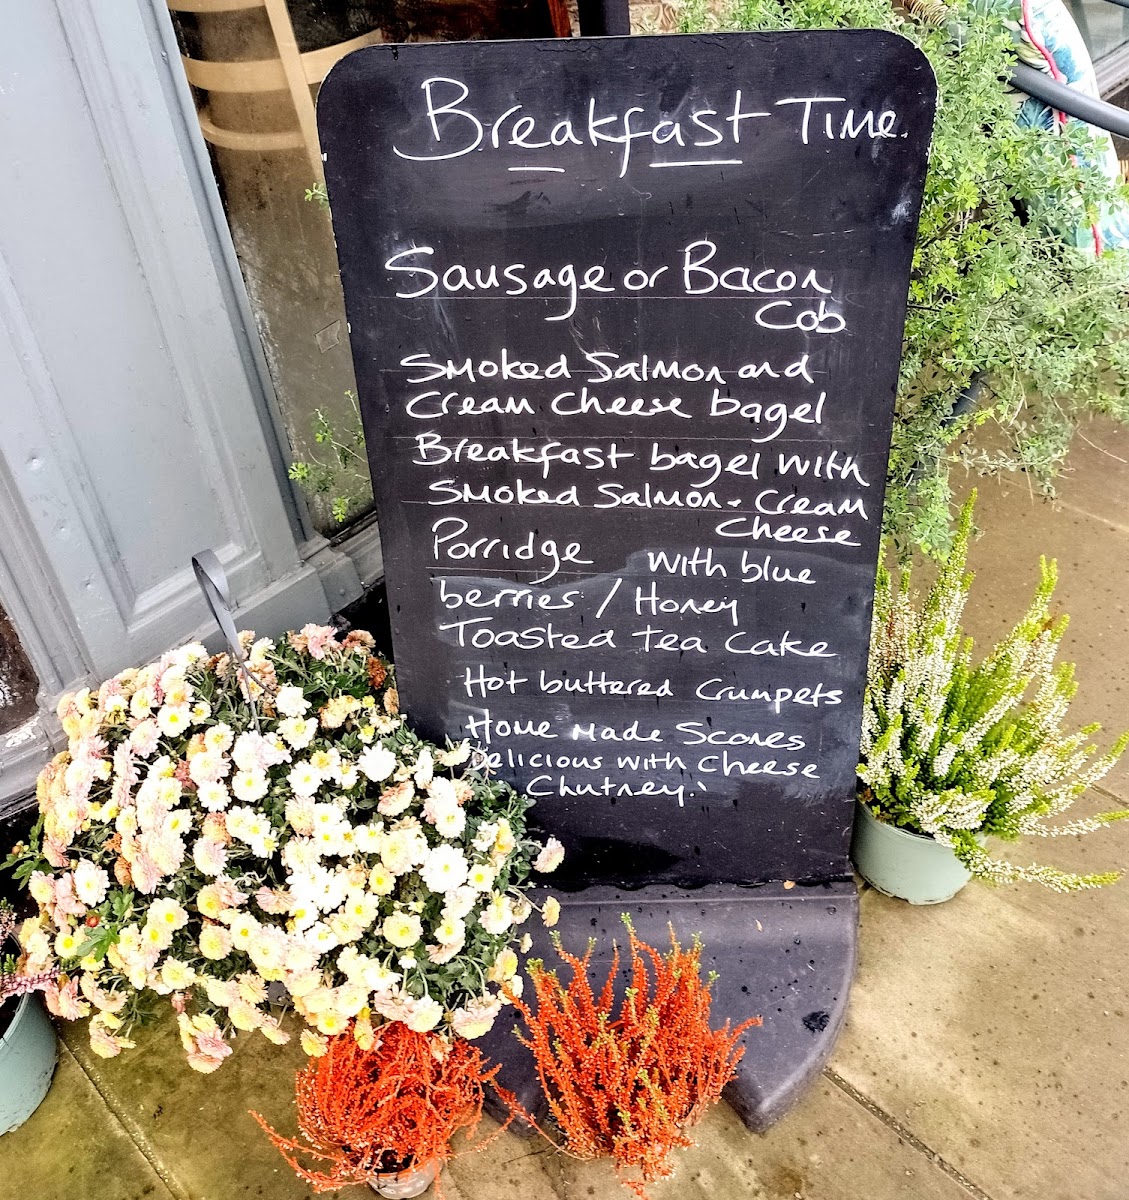 Breakfast Time.
Sausage or Bacon
Cob
Smoked Salmon and
Cream Cheese bagel
Breakfast bagel with
Smoked Salmon - Cream
Cheese
Porridge with blue
berries / Honey
Toasted Tea Cake
Hot buttered Crumpets
Home Made Scones
Delicious with Cheese
Chutney.